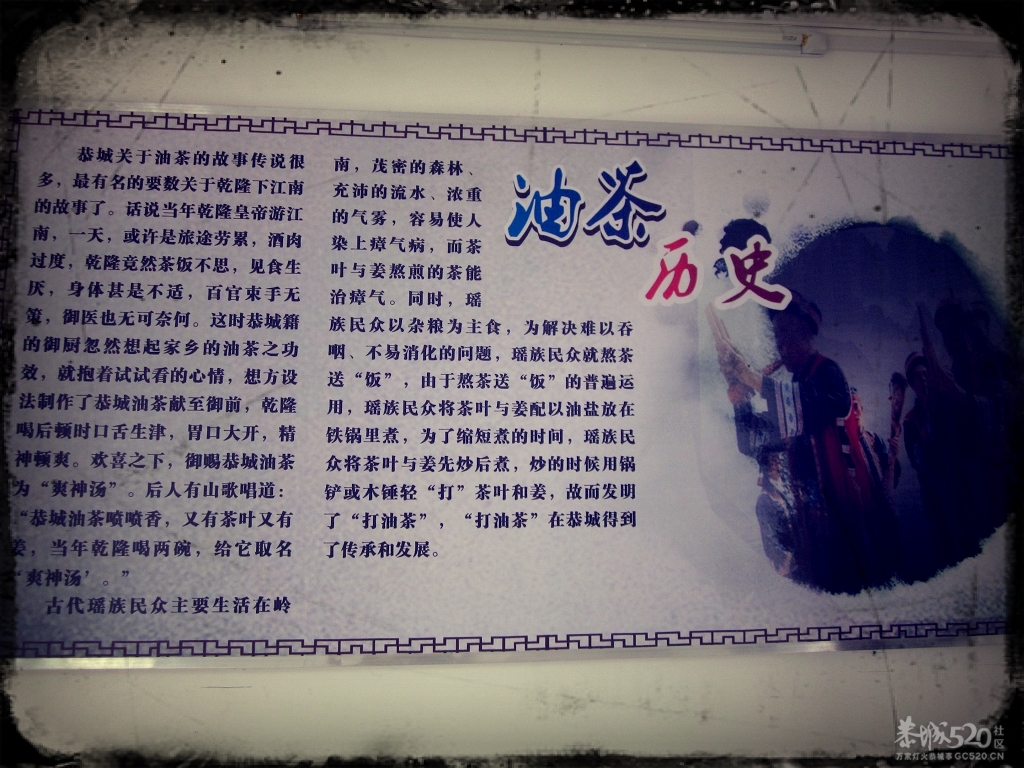 恭城关于油茶的故事传说很
多，最有名的要数关于乾隆下江南
的故事了。话说当年乾隆皇帝游江
南，一天，或许是旅途劳累，酒肉
过度，乾隆竟然茶饭不思，见食生
厌，身体甚是不适，百官束手无
策，御医也无可奈何。这时恭城籍
的御厨忽然想起家乡的油茶之功
效，就抱着试试看的心情，想方设
法制作了恭城油茶献至御前，乾隆
喝后顿时口舌生津，胃口大开，精
神顿爽。欢喜之下，御赐恭城油茶
为“爽神汤”。后人有山歌唱道：
“恭城油茶喷喷香，又有茶叶又有
姜，当年乾隆喝两碗，给它取名
‘爽神汤’。”
古代瑶族民众主要生活在岭
南，茂密的森林、
充沛的流水、浓重
的气雾，容易使人
染上瘴气病，而茶
叶与姜熬煎的茶能
治瘴气。同时，瑶
族民众以杂粮为主食，为解决难以吞
咽、不易消化的问题，瑶族民众就熬茶
送“饭”，由于熬茶送“饭”的普遍运
用，瑶族民众将茶叶与姜配以油盐放在
铁锅里煮，为了缩短煮的时间，瑶族民
众将茶叶与姜先炒后煮，炒的时候用锅
铲或木锤轻“打”茶叶和姜，故而发明
了“打油茶”，“打油茶”在恭城得到
了传承和发展。
油茶
历史
恭城520社区
万家灯火恭城事GC520.CN